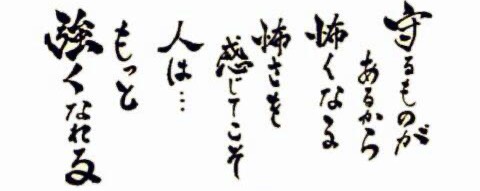 守るものが
あるから
怖くなる
怖さを
感じてこそ
人は…
もっと
強くなれる